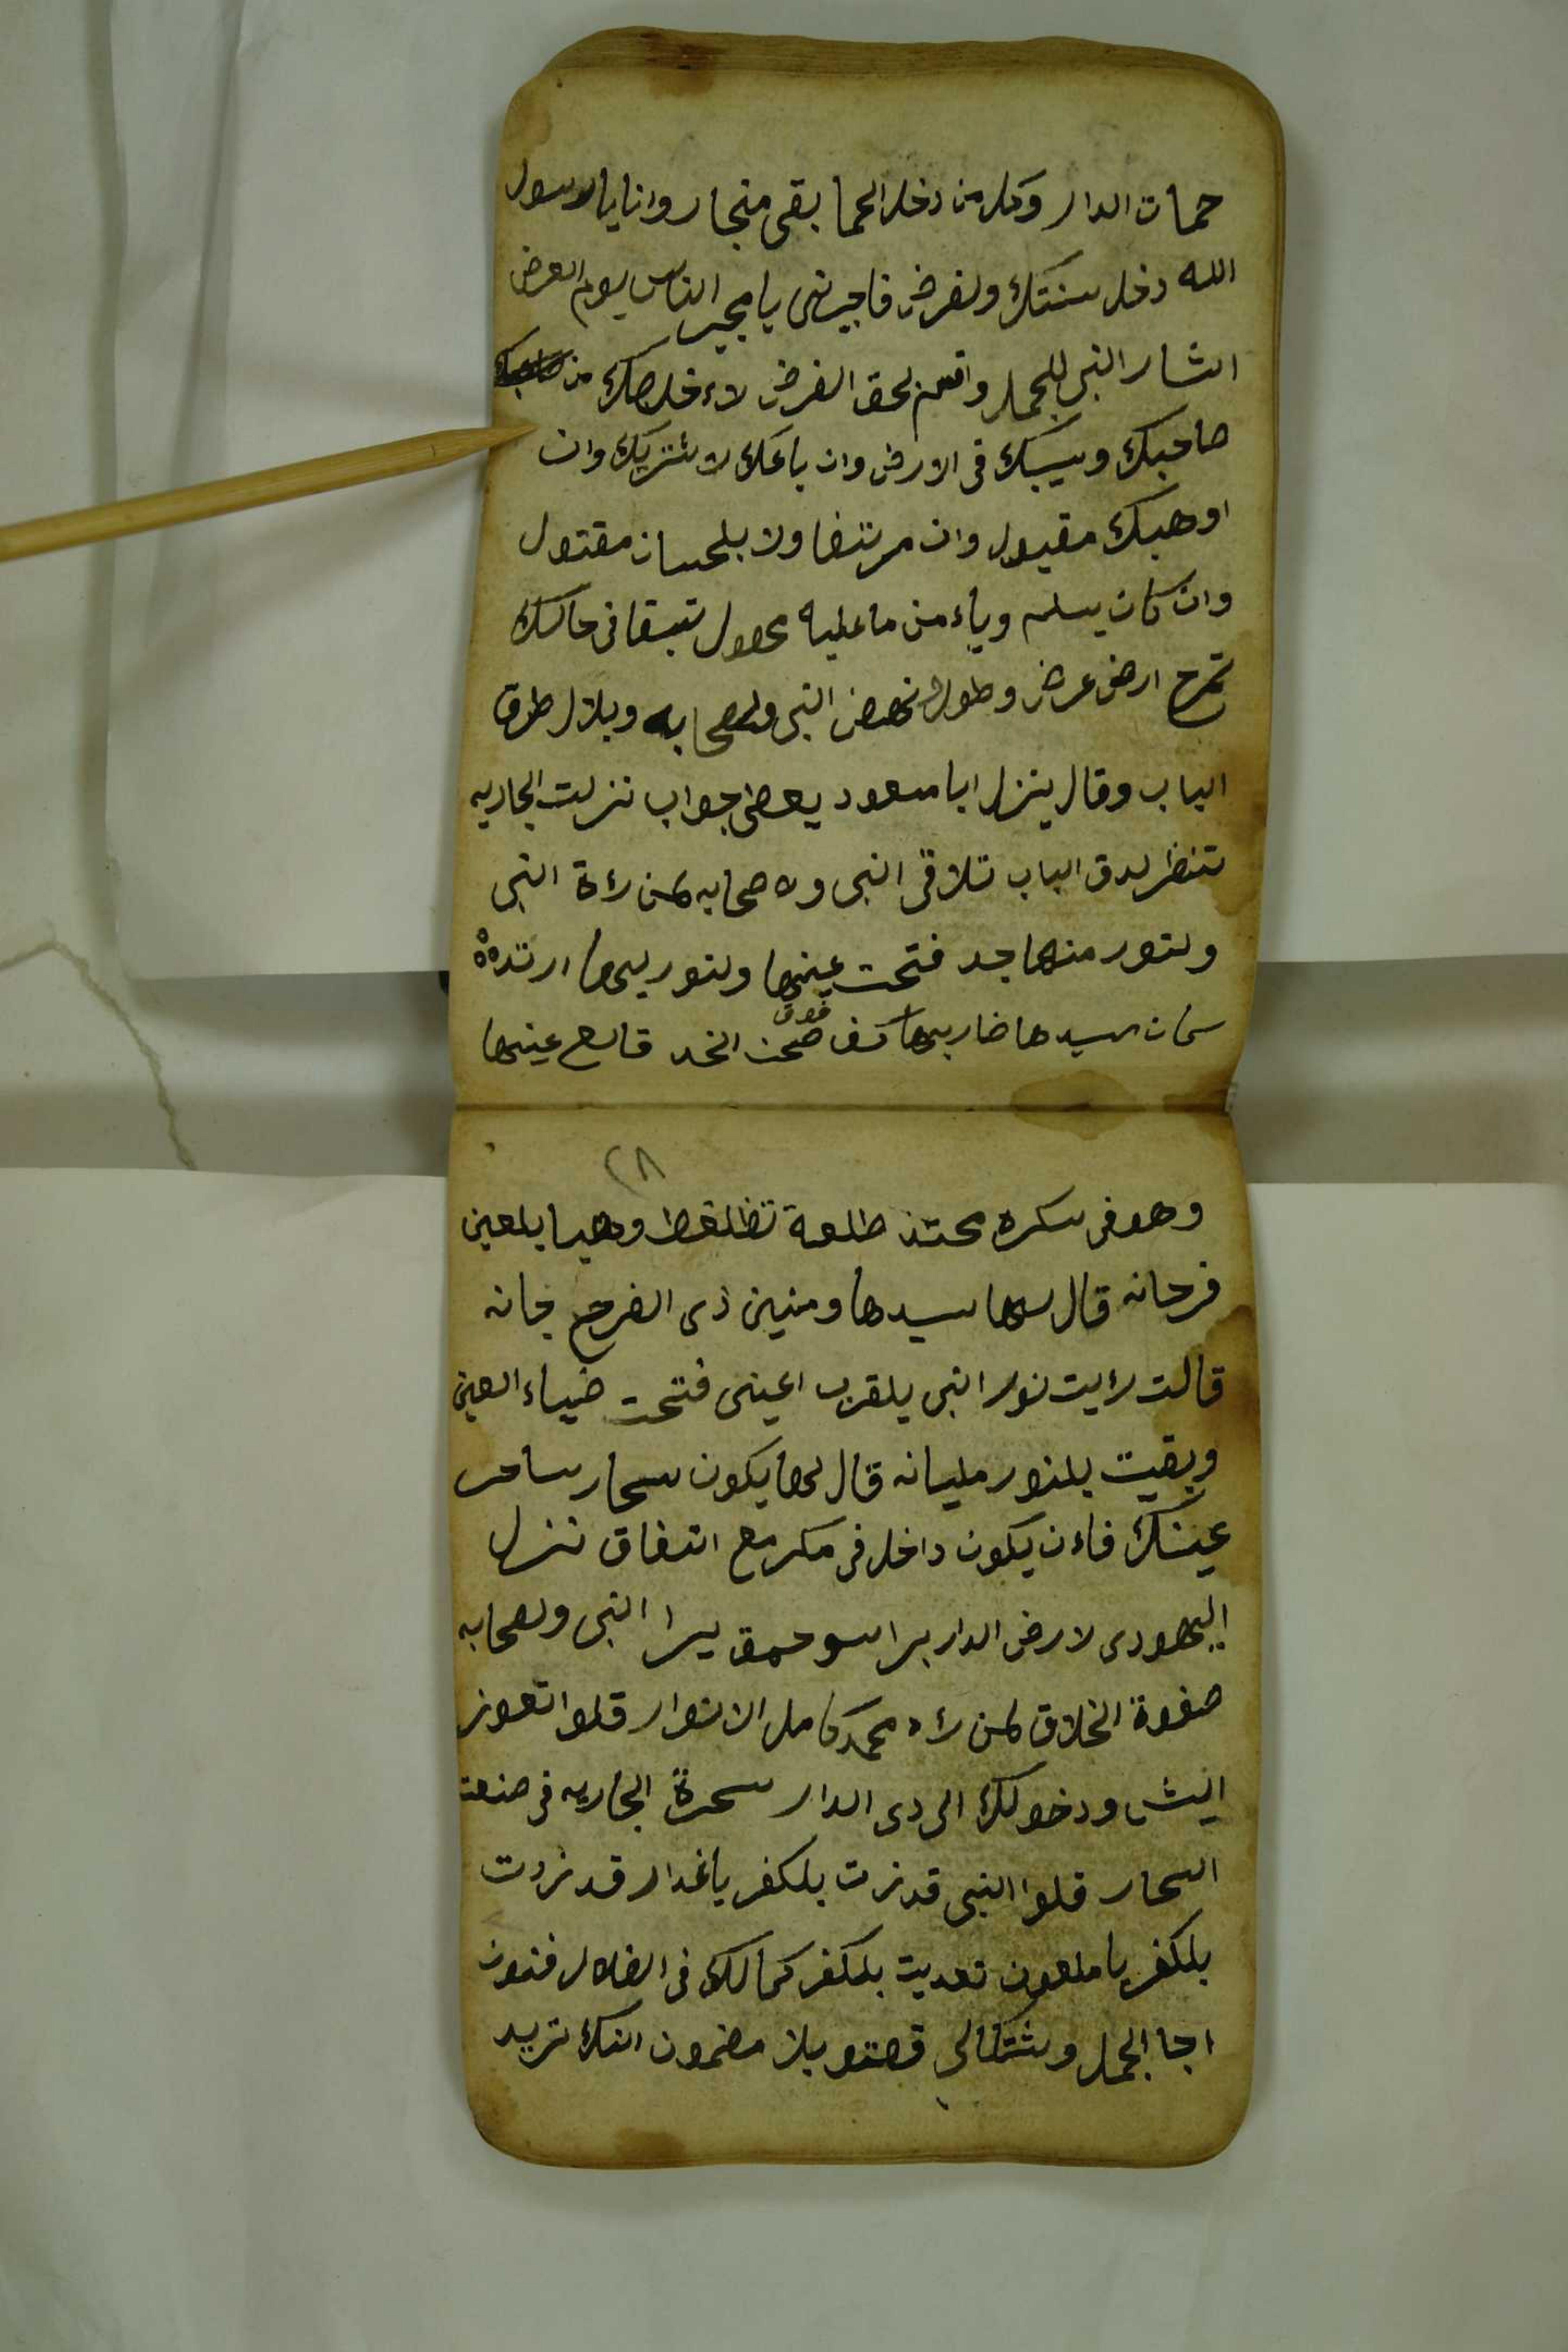 حمات الدار وكل من دخل الحما بقى منجار وانا يا رسول
الله دخل سنتك ولفرض فاجيرنى يا مجير الناس يوم العرض
اشار النبى للجمل واقسم بحق الفرض لاءخلصك من
صاحبك ويسيبك فى الارض وان باعك لاشتريك وان
اوهبك مقبول وان مرتضا ولا بلحسان مقتول
وان كان يسلم وياءمن ما عليه محمول تبقا فى حالك
تمرح ارض عرض وطول نهض النبى ولصحابه وبلال طرق
الباب وقال ينزل ابا مسعود يعطى جواب نزلت الجاريه
تنظر لدق الباب تلاقى النبى ولاصحابه لمن رءة النبى
ولنور منها جد فتحت عينها ولنور ليها ارتده
كان سيدها ضاربها كف فوق صحن الخد قالع عينها
٢٨
وهو فى سكره محتد طلعة تظلغط وهيا بلعين
فرحانه قال لها سيدها ومنين ذى الفرح جانه
قالت رءيت نور النبى يلقرب اعينى فتحت ضياء العين
وبقيت بلنور مليانه قال لها يكون سحار ساحر
عينك فاءن يكون داخل فى مكر مع اتفاق نزل
اليهودى لارض الدار يرا النبى ولصحابه
صفوة الخلاق لمن رءه محمد كامل الانوار قلوا تعوز
ايش ودخولك الى دى الدار سحرة الجاريه فى صنعت
السحار قلوا النبى قد زت بلكفر يا غدار قد زدت
بلكفر يا ملعون تعديت بلكفر كمالك فى الضلال فنون
اجا الجمل وشتكالى قصتو بلا مضمون انك تريد